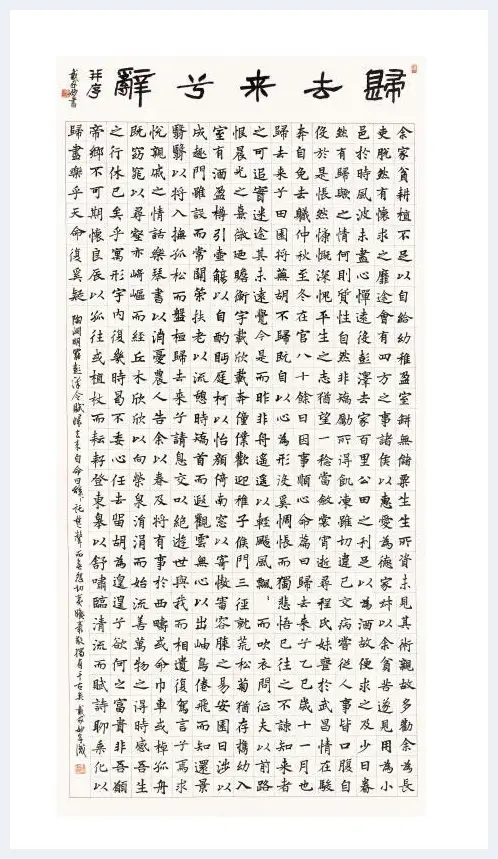 歸去来兮辭
并序
戴家妙書
余家貧耕植不足以自給幼稚盈室缾無儲粟生生所資未見其術親故多勸余為長
吏脫然有懷求之靡途會有四方之事諸侯以惠愛為德家叔以余貧苦遂見用為小
邑於時風波未靜心憚遠役彭澤去家百里公田之利足以為酒故便求之及少日眷
然有歸歟之情何則質性自然非矯勵所得飢凍雖切違己交病嘗從人事皆口腹自
役於是悵然慷慨深愧平生之志猶望一稔當斂裳宵逝尋程氏妹喪於武昌情在駿
奔自免去職仲秋至冬在官八十餘日因事順心命篇曰歸去来兮乙巳歲十一月也
歸去来兮田園將蕪胡不歸既自以心為形役奚惆悵而獨悲悟已往之不諫知来者
之可追實迷途其未遠覺今是而昨非舟遙遙以輕颺風飄飄而吹衣問征夫以前路
恨晨光之熹微乃瞻衡宇載欣載奔僮僕歡迎稚子候門三徑就荒松菊猶存攜幼入
室有酒盈樽引壺觴以自酌眄庭柯以怡顏倚南窗以寄傲審容膝之易安園日涉以
成趣門雖設而常關策扶老以流憩時矯首而遐觀雲無心以出岫鳥倦飛而知還景
翳翳以將入撫孤松而盤桓歸去来兮請息交以絕遊世與我而相遺復駕言兮焉求
悅親戚之情話樂琴書以消憂農人告余以春及將有事於西疇或命巾車或棹孤舟
既窈窕以尋壑亦崎嶇而經丘木欣欣以向榮泉涓涓而始流善萬物之得時感吾生
之行休已矣乎寓形宇內復幾時曷不委心任去留胡為遑遑兮欲何之富貴非吾願
帝鄉不可期懷良辰以孤往或植杖而耘耔登東皋以舒嘯臨清流而賦詩聊乘化以
歸盡樂乎天命復奚疑
陶淵明罷彭澤令賦歸去来自命曰辭